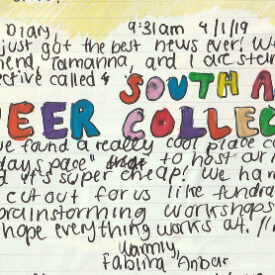 Diary 9:31am 4/1/19
just got the best news ever! W
end, Tamanna, and I are star
ective called &
SOUTH A
EER COLLEC
ve found a really cool place co
days pase" to host our
d it's super cheap! We ha
cut out for us like fundra
brainstorming workshops
hope everything works out. //
Warmly,
Fabliha Anbar